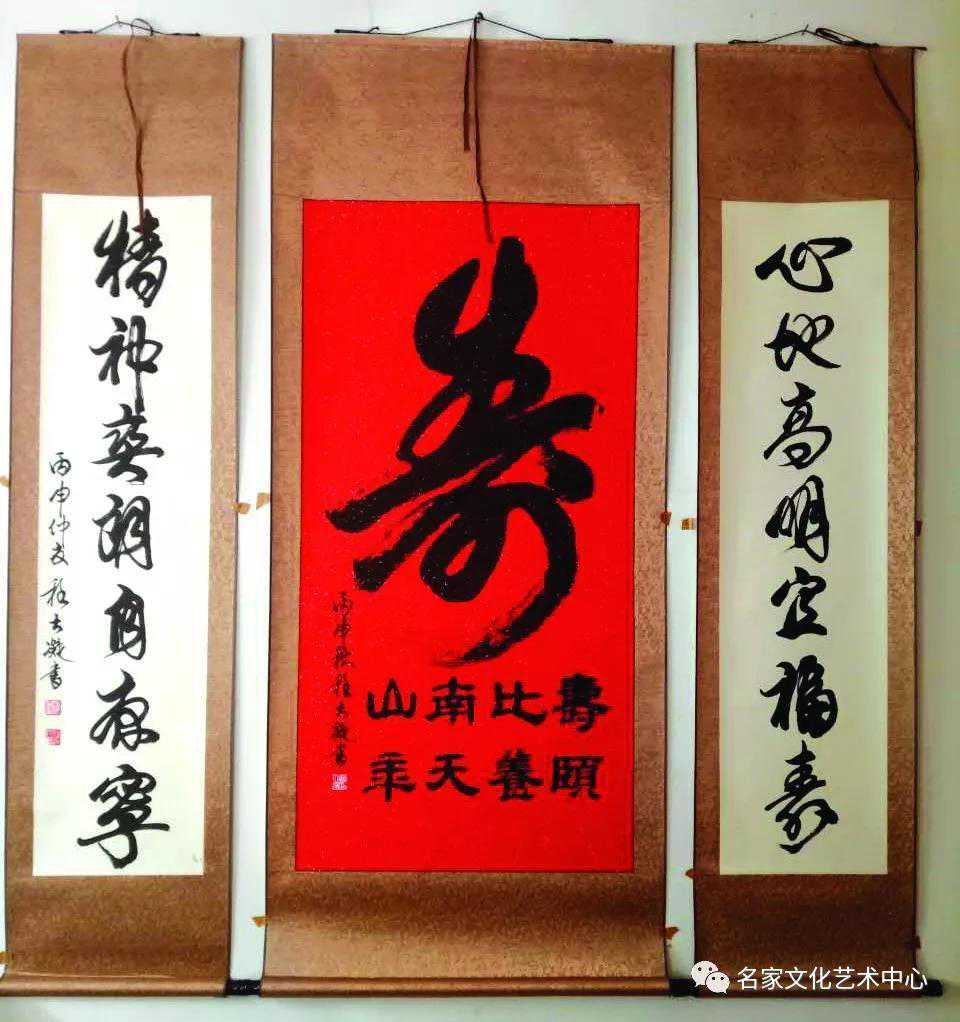 心地高明宜福壽
寿
壽比南山
頤養天年
丙申秋大凝書
精神爽朗自康寧
丙申仲大凝書
名家文化艺术中心